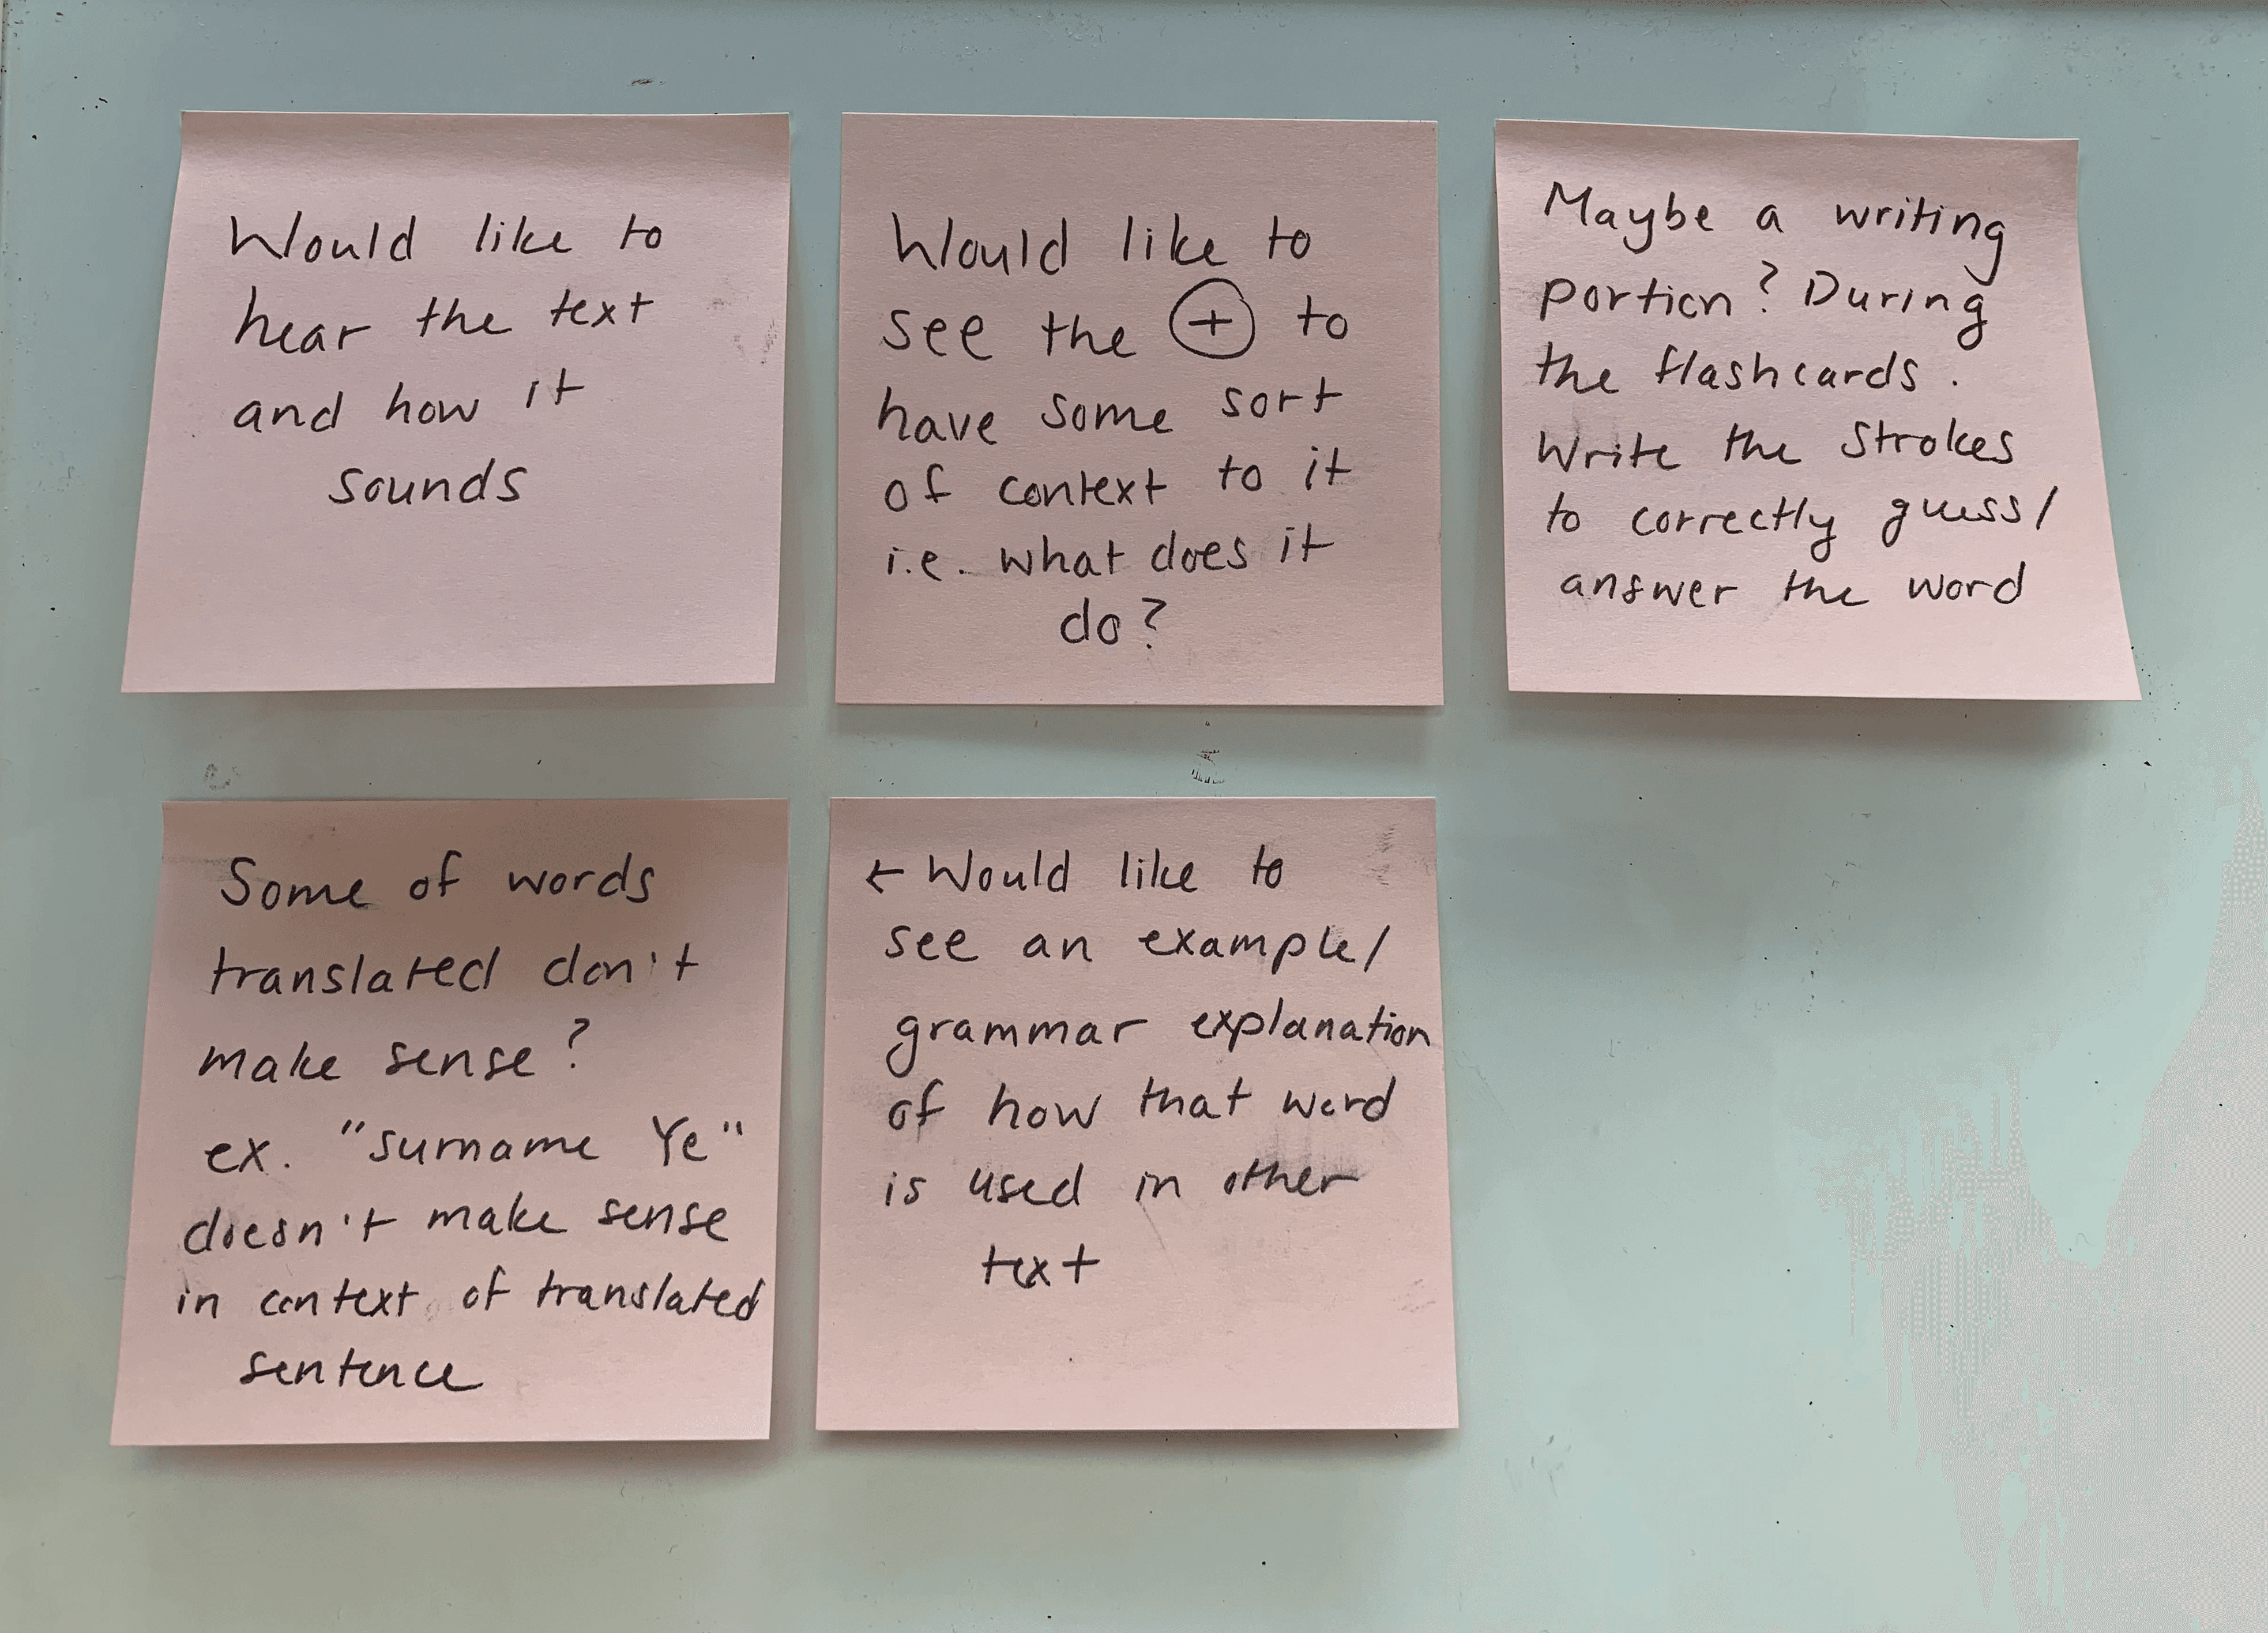 Would like to
hear the text
and how it
sounds
Would like to
see the + to
have some sort
of context to it
i.e. what does it
do?
Maybe a writing
portion? During
the flashcards.
Write the strokes
to correctly guess/
answer the word
Some of words
translated don't
make sense?
ex. "surname Ye"
doesn't make sense
in context of translated
sentence
← Would like to
see an example/
grammar explanation
of how that word
is used in other
text